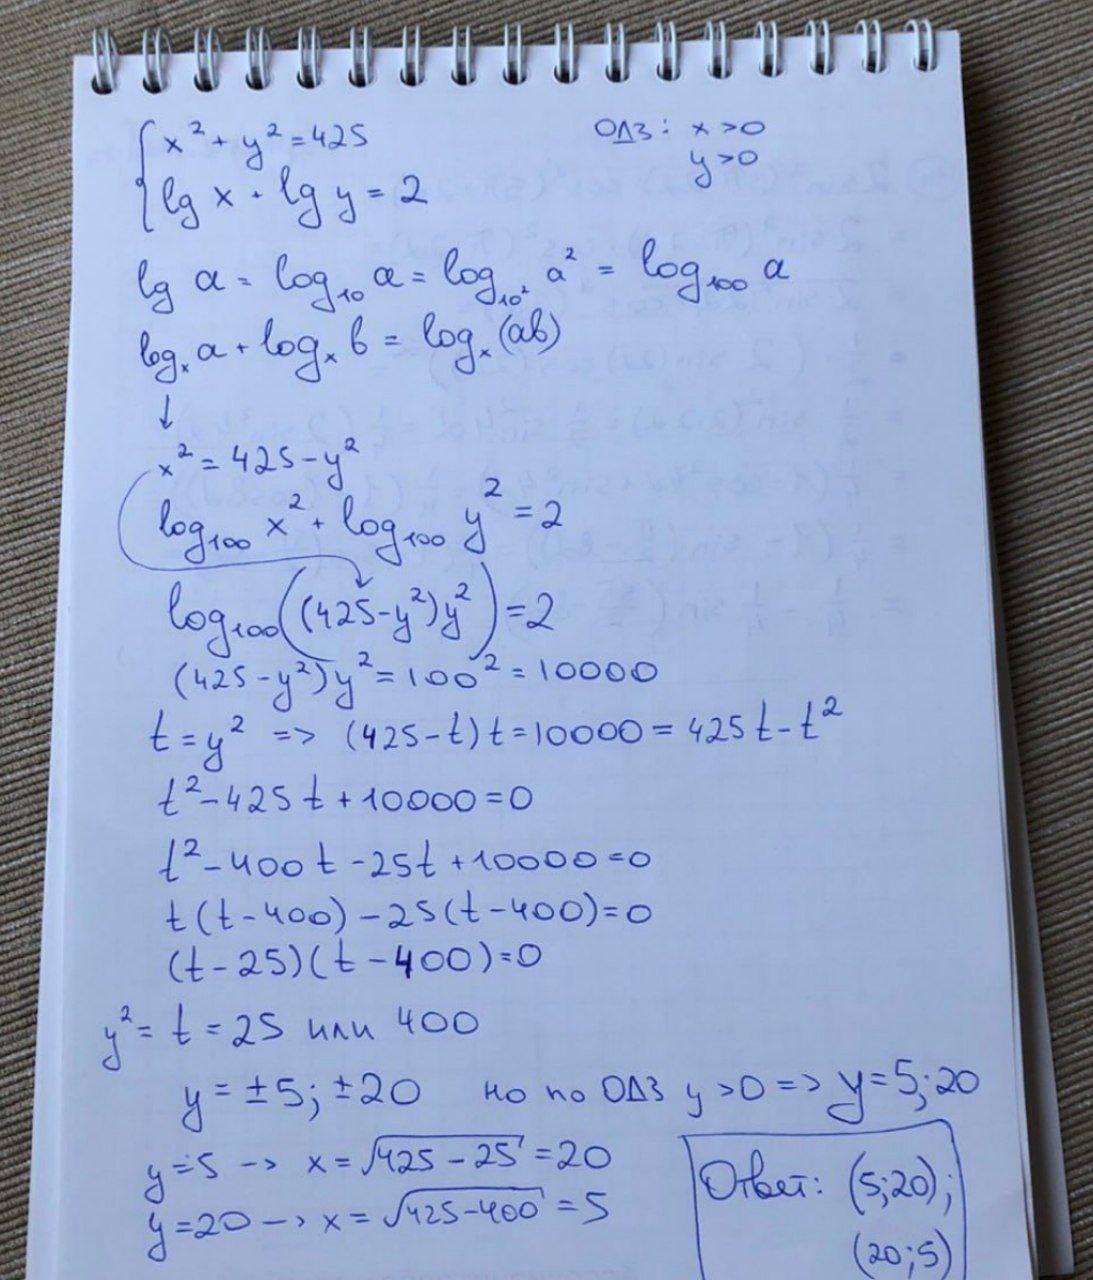 x² + y² = 425
ОДЗ: x > 0
y > 0
lg x + lg y = 2
lg a = log₁₀ a = log₁₀² a² = log₁₀₀ a
logₓ a + logₓ b = logₓ (ab)
↓
x² = 425 - y²
log₁₀₀ x² + log₁₀₀ y² = 2
log₁₀₀((425-y²)y²) = 2
(425-y²)y² = 100² = 10000
t = y² => (425-t)t = 10000 = 425t - t²
t² - 425t + 10000 = 0
t² - 400t - 25t + 10000 = 0
t(t-400) - 25(t-400) = 0
(t-25)(t-400) = 0
y² = t = 25 или 400
y = ±5; ±20 но по ОДЗ y > 0 => y = 5; 20
y = 5 -> x = √(425-25) = 20
y = 20 -> x = √(425-400) = 5
Ответ: (5;20);
(20;5)